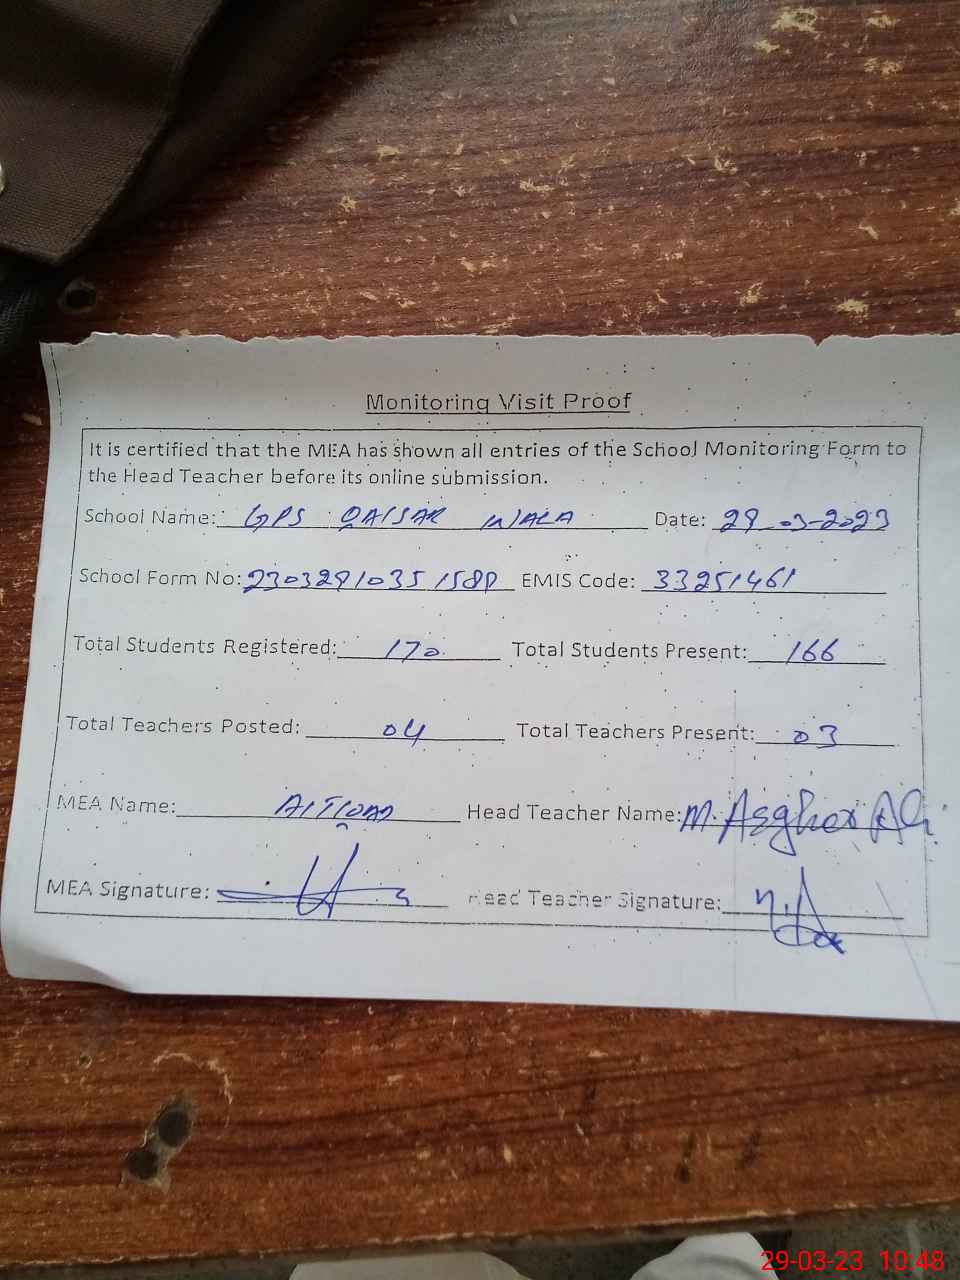 Monitoring Visit Proof
It is certified that the MEA has shown all entries of the School Monitoring Form to
the Head Teacher before its online submission.
School Name: GPS QAISAR WALA Date: 29-03-2023
School Form No: EMIS Code: 33251461
Total Students Registered: 170 Total Students Present: 166
Total Teachers Posted: 04 Total Teachers Present: 03
MEA Name: Head Teacher Name: M. Asghar Ali
MEA Signature: Head Teacher Signature:
29-03-23 10:48